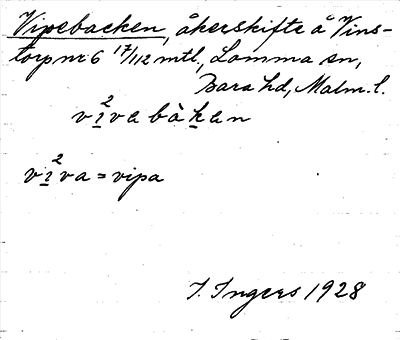 Vipebacken, åkerskifte å Vins-
torp nr 6 17/112 mtl, Lomma sn,
Bara hd, Malm. l.
vi²va bàkan
vi²va = vipa
I. Ingers 1928